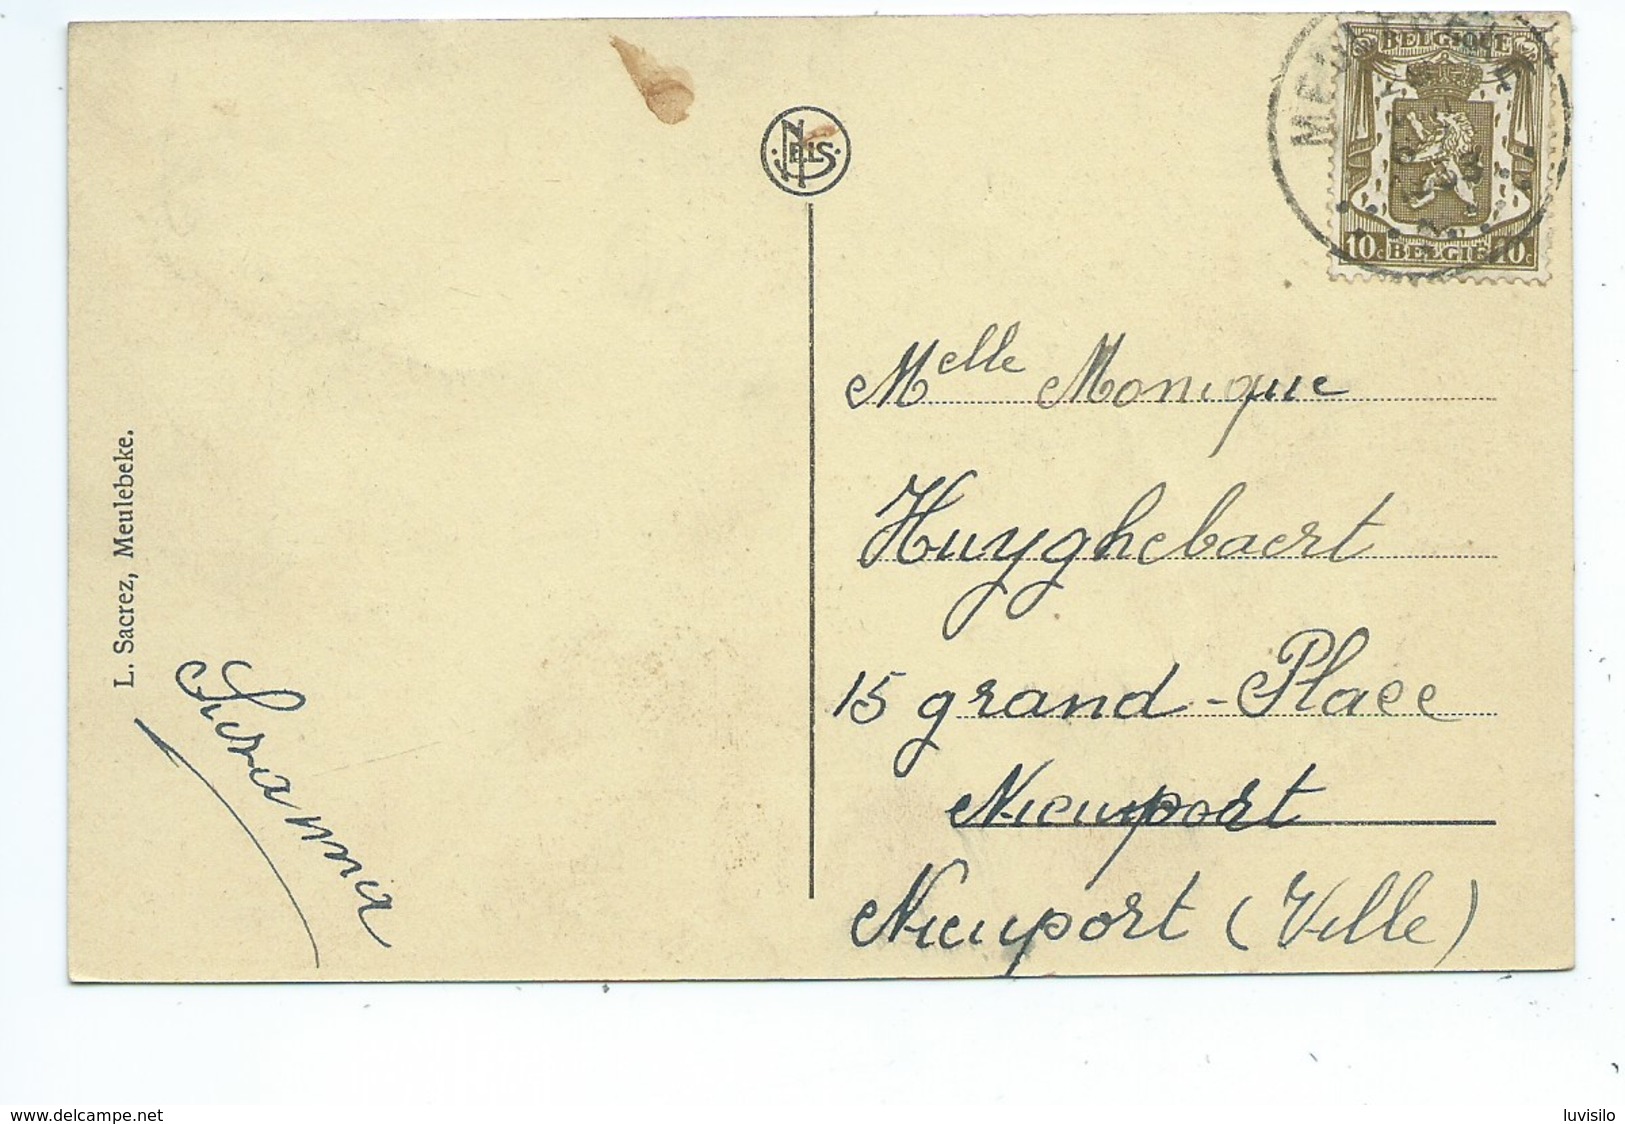 BELGIQUE
10c BELGIË 10c
NELS
Melle Monique
Huyghebaert
15 grand-Place
Nieuport
Nieuport (Ville)
L. Sacrez, Meulebeke.
www.delcampe.net
luvisilo